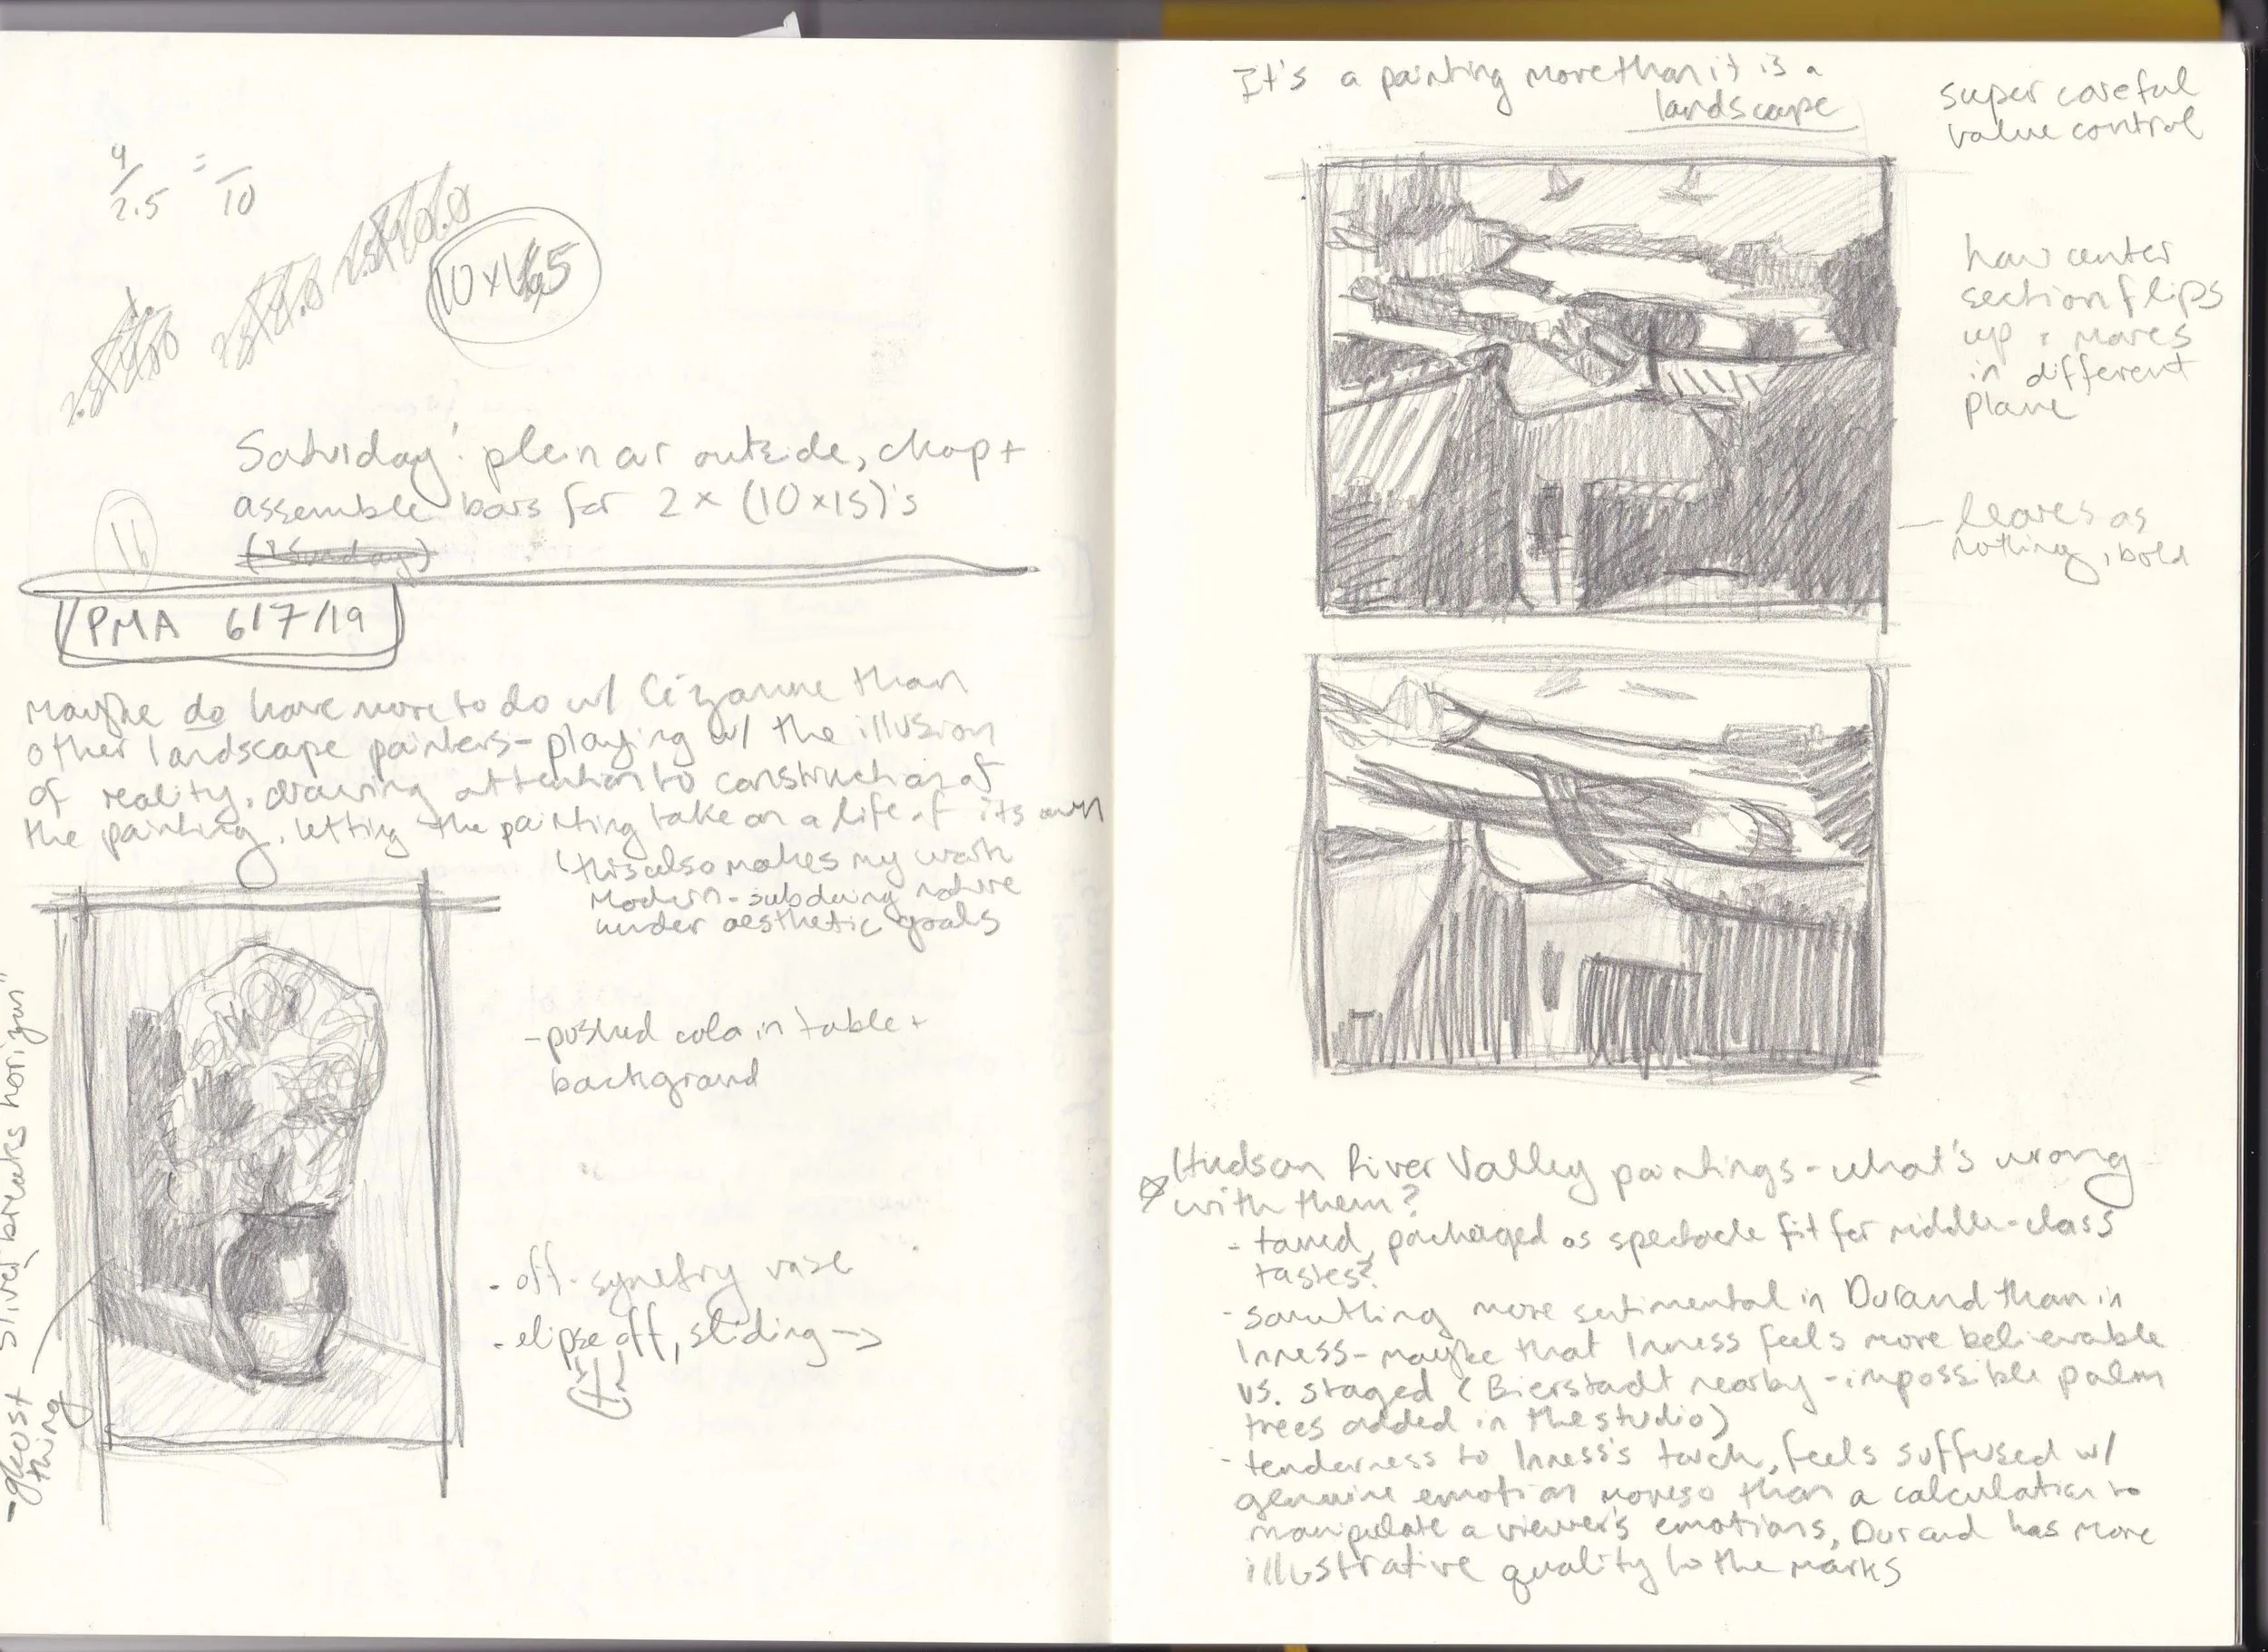 4/2.5 = /10
10 x 16.5
Saturday: plein air outside, chop +
assemble bars for 2 x (10x15)'s
(? Sunday)
16
PMA 6/7/19
Maybe do have more to do w/ Cézanne than
other landscape painters - playing w/ the illusion
of reality, drawing attention to construction of
the painting, letting the painting take on a life of its own
this also makes my work
Modern - subduing nature
under aesthetic goals
- pushed color in table +
background
- off-symetry vase
- elipse off, sliding →
- ghost sliver breaks horizon"
thing
It's a painting more than it is a
landscape
super careful
value control
how center
section flips
up + moves
in different
plane
- leaves as
nothing, bold
Hudson River Valley paintings - what's wrong
with them?
- tamed, packaged as spectacle fit for middle-class
tastes?
- something more sentimental in Durand than in
Inness - maybe that Inness feels more believable
vs. staged (Bierstadt nearby - impossible palm
trees added in the studio)
- tenderness to Inness's touch, feels suffused w/
genuine emotion moreso than a calculation to
manipulate a viewer's emotions, Durand has more
illustrative quality to the marks